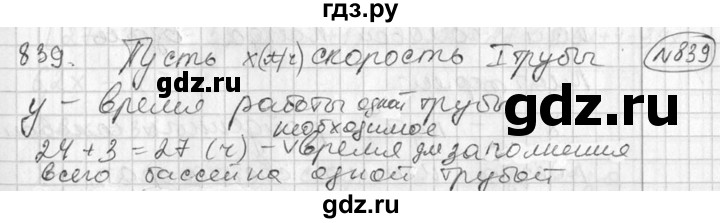 гдз.ру
839. Пусть х(л/ч) скорость I трубы №839
у - время работы одной трубы
необходимое
24 + 3 = 27 (ч) - √ время для заполнения
всего бассейна одной трубой
гдз.ру